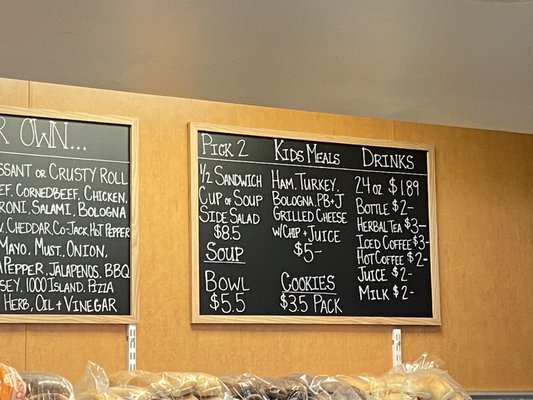 OWN...
OR CRUSTY ROLL
CORNEDBEEF, CHICKEN,
SALAMI, BOLOGNA
CHEDDAR, CO-JACK, HOT PEPPER
MAYO, MUST., ONION,
PEPPER, JALAPENOS, BBQ
1000 ISLAND, PIZZA
HERB, OIL + VINEGAR
PICK 2
½ SANDWICH
CUP OF SOUP
SIDE SALAD
$8.5
SOUP
BOWL
$5.5
KIDS MEALS
HAM, TURKEY,
BOLOGNA, PB+J
GRILLED CHEESE
W/CHIP + JUICE
$5-
COOKIES
$3.5 PACK
DRINKS
24 OZ $1.89
BOTTLE $2-
HERBAL TEA $3-
ICED COFFEE $3-
HOT COFFEE $2-
JUICE $2-
MILK $2-